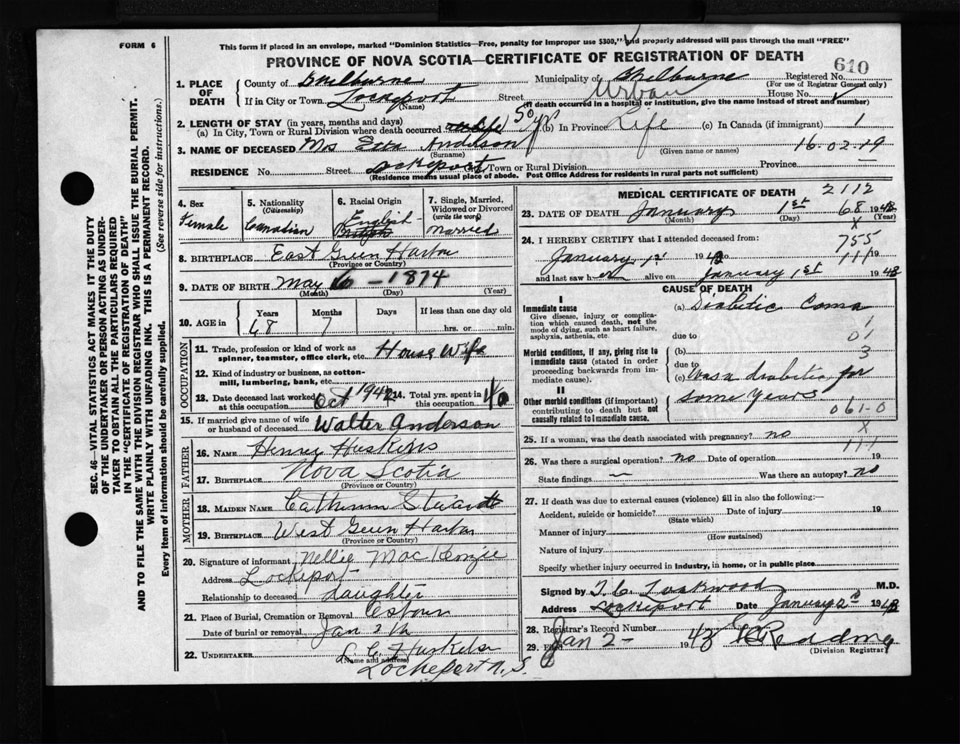 FORM 6
This form if placed in an envelope, marked "Dominion Statistics—Free, penalty for improper use $300," and properly addressed will pass through the mail "FREE"
PROVINCE OF NOVA SCOTIA—CERTIFICATE OF REGISTRATION OF DEATH
610
1. PLACE OF DEATH
County of Shelburne Municipality of Shelburne Registered No.
(For use of Registrar General only)
If in City or Town Lockeport Street Urban House No.
(Name) (If death occurred in a hospital or institution, give the name instead of street and number)
2. LENGTH OF STAY (in years, months and days)
(a) In City, Town or Rural Division where death occurred 50 yrs (b) In Province Life (c) In Canada (if immigrant) 1
3. NAME OF DECEASED Mrs Anderson 16.02.19
(Surname) (Given name or names)
RESIDENCE No. Street Lockeport City, Town or Rural Division Province
(Residence means usual place of abode. Post Office Address for residents in rural parts not sufficient)
4. Sex Female
5. Nationality (Citizenship) Canadian
6. Racial Origin English
7. Single, Married, Widowed or Divorced (write the word) Married
8. BIRTHPLACE East Green Harbor
(Province or Country)
9. DATE OF BIRTH May 6 - 1874
(Month) (Day) (Year)
10. AGE in Years Months Days If less than one day old
68 7 hrs. or min.
OCCUPATION
11. Trade, profession or kind of work as spinner, teamster, office clerk, etc. House Wife
12. Kind of industry or business, as cotton-mill, lumbering, bank, etc.
13. Date deceased last worked at this occupation Oct 1942 14. Total yrs. spent in this occupation
15. If married give name of wife or husband of deceased Walter Anderson
FATHER
16. NAME Henry Huskins
17. BIRTHPLACE Nova Scotia
(Province or Country)
MOTHER
18. MAIDEN NAME
19. BIRTHPLACE West Green Harbor
(Province or Country)
20. Signature of informant Nellie MacKenzie
Address Lockeport
Relationship to deceased daughter
21. Place of Burial, Cremation or Removal
Date of burial or removal Jan
22. UNDERTAKER
(Name and address)
Lockeport N.S.
MEDICAL CERTIFICATE OF DEATH
2112
23. DATE OF DEATH January 1st 1943
(Month) (Day) (Year)
68
x
24. I HEREBY CERTIFY that I attended deceased from:
755
January 1st 194
111
and last saw h er alive on January 1st 1943
CAUSE OF DEATH
I
Immediate cause (a) Diabetic Coma
Give disease, injury or complication which caused death, not the mode of dying, such as heart failure, asphyxia, asthenia, etc.
1
due to 01
Morbid conditions, if any, giving rise to immediate cause (stated in order proceeding backwards from immediate cause).
(b) 3
due to
(c) Was a diabetic for
some years
II
Other morbid conditions (if important) contributing to death but not causally related to immediate cause.
061-0
x
25. If a woman, was the death associated with pregnancy? no
111
26. Was there a surgical operation? no Date of operation 19
State findings – Was there an autopsy? no
27. If death was due to external causes (violence) fill in also the following:—
Accident, suicide or homicide? Date of injury 19
(State which)
Manner of injury
(How sustained)
Nature of injury
Specify whether injury occurred in industry, in home, or in public place
Signed by Lockwood M.D.
Address Lockeport Date January 2nd 1943
28. Registrar's Record Number
29. Filed Jan 2- 1943
(Division Registrar)
SEC. 46—VITAL STATISTICS ACT MAKES IT THE DUTY
OF THE UNDERTAKER OR PERSON ACTING AS UNDER-
TAKER TO OBTAIN ALL THE PARTICULARS REQUIRED
IN THE "CERTIFICATE OF REGISTRATION OF DEATH"
AND TO FILE THE SAME WITH THE DIVISION REGISTRAR WHO SHALL ISSUE THE BURIAL PERMIT.
WRITE PLAINLY WITH UNFADING INK. THIS IS A PERMANENT RECORD.
Every item of information should be carefully supplied. (See reverse side for instructions.)